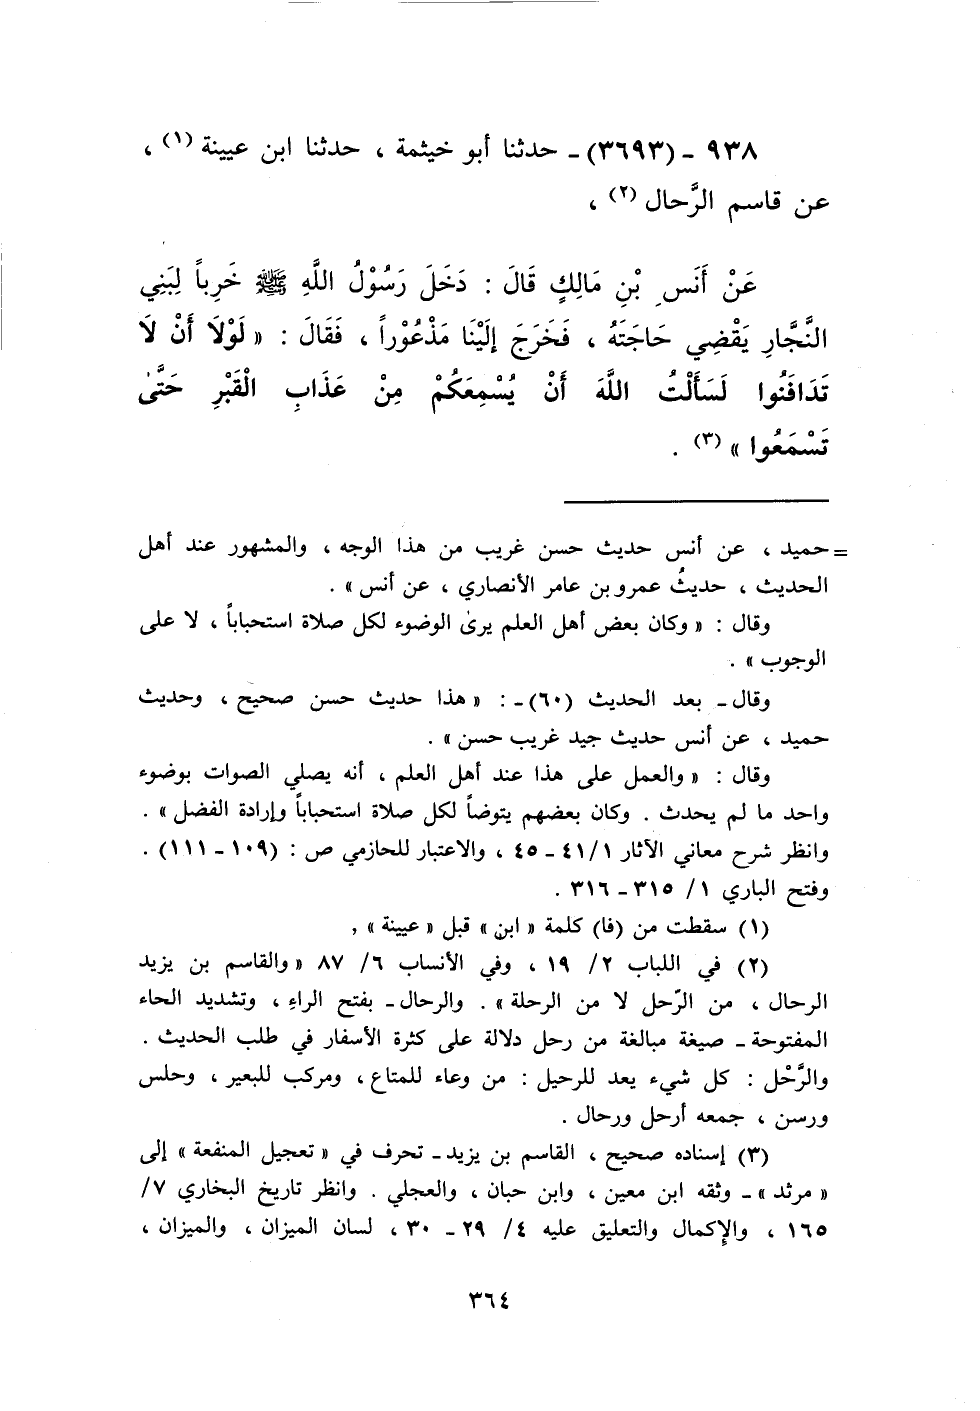 ٩٣٨ - (٣٦٩٣) - حدثنا أبو خيثمة ، حدثنا ابن عيينة (١) ،
عن قاسم الرَّحال (٢) ،
عَنْ أَنَسِ بْنِ مَالِكٍ قَالَ : دَخَلَ رَسُوْلُ اللَّهِ ﷺ خَرِباً لِبَنِي
النَّجَّارِ يَقْضِي حَاجَتَهُ ، فَخَرَجَ إِلَيْنَا مَذْعُوْراً ، فَقَالَ : « لَوْلَا أَنْ لَا
تَدَافَنُوا لَسَأَلْتُ اللَّهَ أَنْ يُسْمِعَكُمْ مِنْ عَذَابِ الْقَبْرِ حَتَّىٰ
تَسْمَعُوا » (٣) .
= حميد ، عن أنس حديث حسن غريب من هذا الوجه ، والمشهور عند أهل
الحديث ، حديثُ عمرو بن عامر الأنصاري ، عن أنس » .
وقال : « وكان بعض أهل العلم يرىٰ الوضوء لكل صلاة استحباباً ، لا على
الوجوب » .
وقال - بعد الحديث (٦٠) - : « هذا حديث حسن صحيح ، وحديث
حميد ، عن أنس حديث جيد غريب حسن » .
وقال : « والعمل على هذا عند أهل العلم ، أنه يصلي الصوات بوضوء
واحد ما لم يحدث . وكان بعضهم يتوضأ لكل صلاة استحباباً وإرادة الفضل » .
وانظر شرح معاني الآثار ٤١/١ - ٤٥ ، والاعتبار للحازمي ص : (١٠٩ - ١١١) .
وفتح الباري ١/ ٣١٥ - ٣١٦ .
(١) سقطت من (فا) كلمة « ابن » قبل « عيينة » ,
(٢) في اللباب ٢/ ١٩ ، وفي الأنساب ٦/ ٨٧ « والقاسم بن يزيد
الرحال ، من الرّحل لا من الرحلة » . والرحال - بفتح الراءِ ، وتشديد الحاء
المفتوحة - صيغة مبالغة من رحل دلالة على كثرة الأسفار في طلب الحديث .
والرَّحْل : كل شيء يعد للرحيل : من وعاء للمتاع ، ومركب للبعير ، وحلس
ورسن ، جمعه أرحل ورحال .
(٣) إسناده صحيح ، القاسم بن يزيد - تحرف في « تعجيل المنفعة » إلى
« مرثد » - وثقه ابن معين ، وابن حبان ، والعجلي . وانظر تاريخ البخاري ٧/
١٦٥ ، والإكمال والتعليق عليه ٤/ ٢٩ - ٣٠ ، لسان الميزان ، والميزان ،
٣٦٤